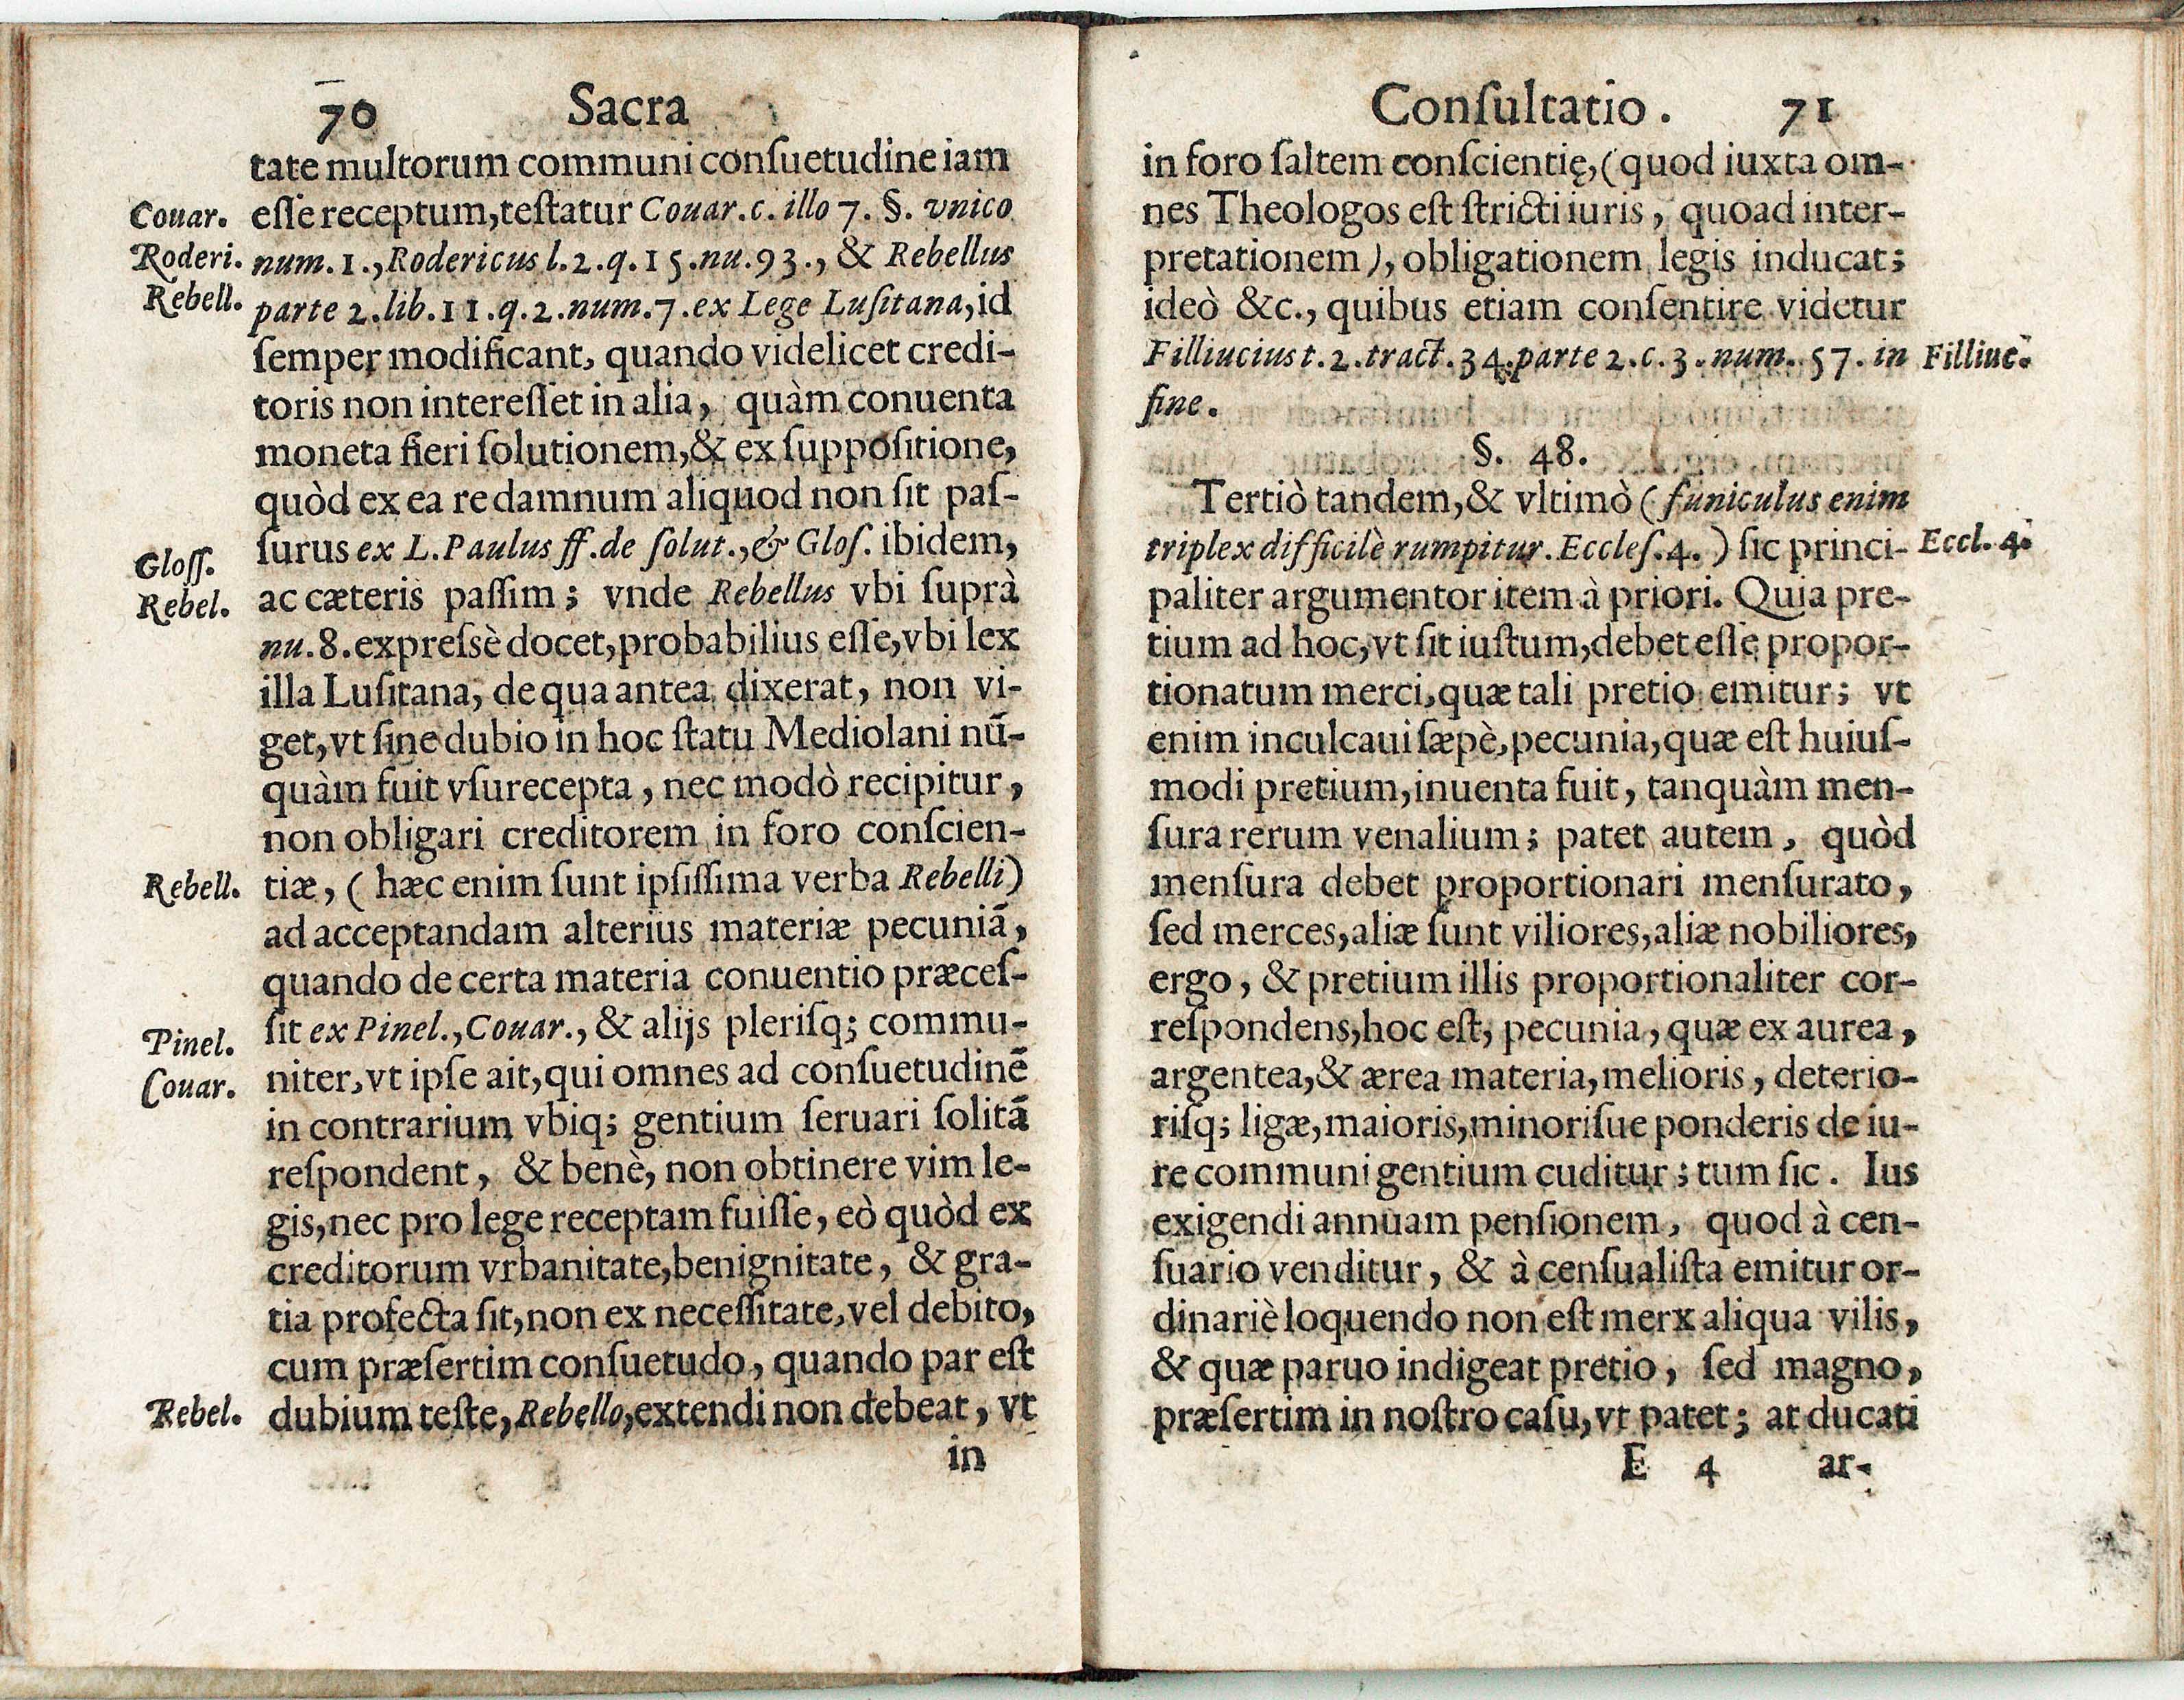 70 Sacra
tate multorum communi conſuetudine iam
Couar. eſſe receptum, teſtatur Couar. c. illo 7. §. vnico
Roderi. num. 1., Rodericus l. 2. q. 15. nu. 93., & Rebellus
Rebell. parte 2. lib. 11. q. 2. num. 7. ex Lege Luſitana, id
ſemper modificant, quando videlicet credi-
toris non intereſſet in alia, quàm conuenta
moneta fieri ſolutionem, & ex ſuppoſitione,
quòd ex ea re damnum aliquod non ſit paſ-
Gloſſ. ſurus ex L. Paulus ff. de ſolut., & Gloſ. ibidem,
Rebel. ac cæteris paſſim; vnde Rebellus vbi ſuprà
nu. 8. expreſsè docet, probabilius eſſe, vbi lex
illa Luſitana, de qua antea dixerat, non vi-
get, vt ſine dubio in hoc ſtatu Mediolani nū-
quàm fuit vſurecepta, nec modò recipitur,
non obligari creditorem in foro conſcien-
Rebell. tiæ, (hæc enim ſunt ipſiſſima verba Rebelli)
ad acceptandam alterius materiæ pecuniā,
quando de certa materia conuentio præceſ-
Pinel. ſit ex Pinel., Couar., & alijs pleriſq; commu-
Couar. niter, vt ipſe ait, qui omnes ad conſuetudinē
in contrarium vbiq; gentium ſeruari ſolitā
reſpondent, & benè, non obtinere vim le-
gis, nec pro lege receptam fuiſſe, eò quòd ex
creditorum vrbanitate, benignitate, & gra-
tia profecta ſit, non ex neceſſitate, vel debito,
cum præſertim conſuetudo, quando par eſt
Rebel. dubium teſte, Rebello, extendi non debeat, vt
in
Conſultatio. 71
in foro ſaltem conſcientię, (quod iuxta om-
nes Theologos eſt ſtricti iuris, quoad inter-
pretationem), obligationem legis inducat;
ideò &c., quibus etiam conſentire videtur
Filliucius t. 2. tract. 34. parte 2. c. 3. num. 57. in Filliuc.
fine.
§. 48.
Tertiò tandem, & vltimò (funiculus enim
triplex difficilè rumpitur. Eccleſ. 4.) ſic princi- Eccl. 4.
paliter argumentor item à priori. Quia pre-
tium ad hoc, vt ſit iuſtum, debet eſſe propor-
tionatum merci, quæ tali pretio emitur; vt
enim inculcaui ſæpè, pecunia, quæ eſt huiuſ-
modi pretium, inuenta fuit, tanquàm men-
ſura rerum venalium; patet autem, quòd
menſura debet proportionari menſurato,
ſed merces, aliæ ſunt viliores, aliæ nobiliores,
ergo, & pretium illis proportionaliter cor-
reſpondens, hoc eſt, pecunia, quæ ex aurea,
argentea, & ærea materia, melioris, deterio-
riſq; ligæ, maioris, minoriſue ponderis de iu-
re communi gentium cuditur; tum ſic. Ius
exigendi annuam penſionem, quod à cen-
ſuario venditur, & à cenſualiſta emitur or-
dinariè loquendo non eſt merx aliqua vilis,
& quæ paruo indigeat pretio, ſed magno,
præſertim in noſtro caſu, vt patet; at ducati
E 4 ar-